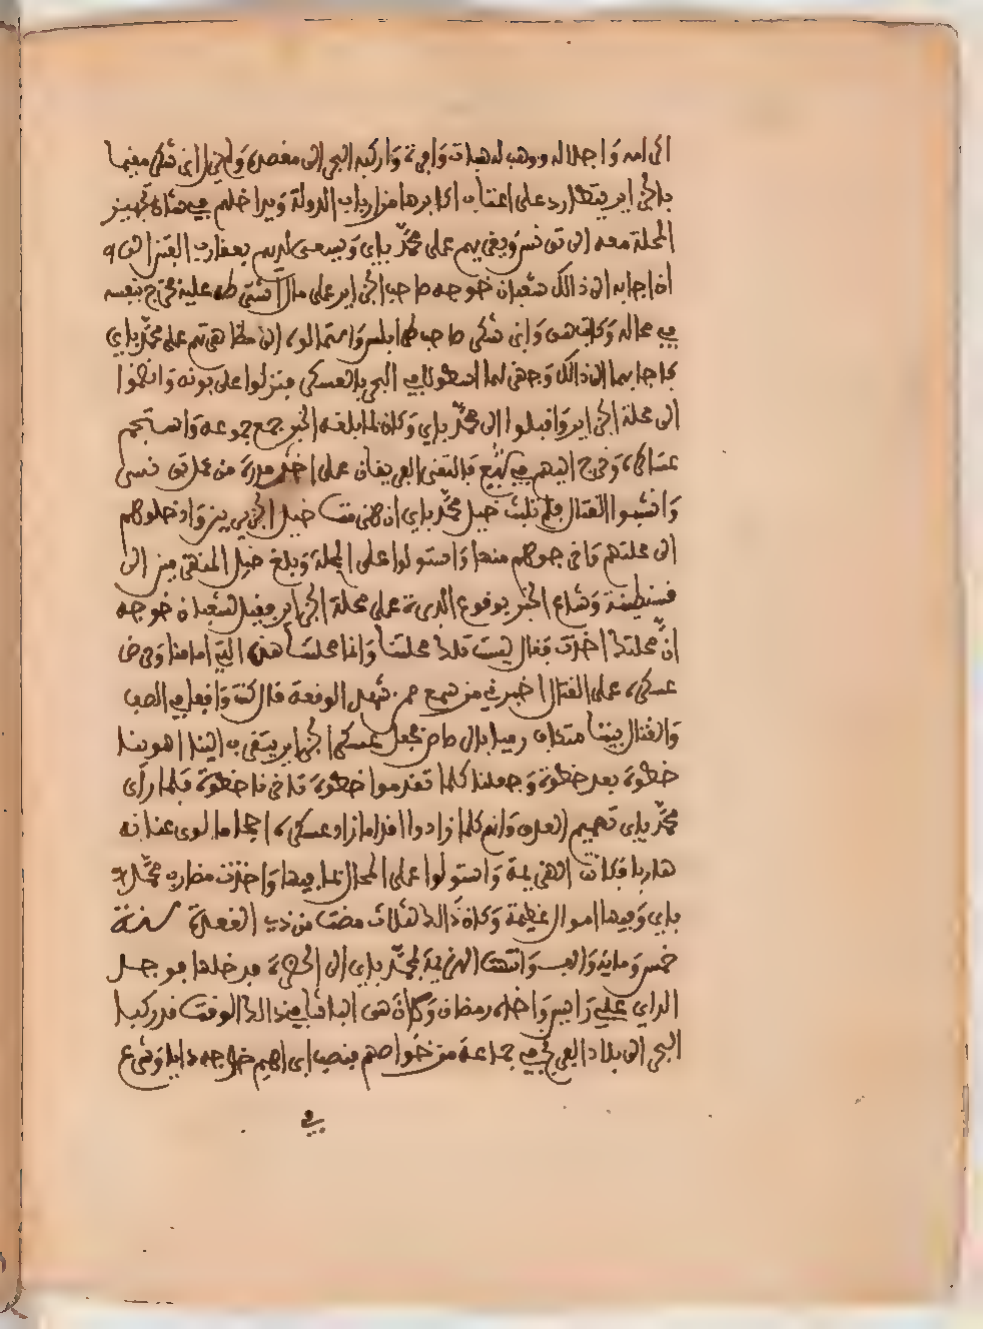 اكرامه واجلاله ووهب له هبات وافرة واركبه البحر الى مقصده وابن شكر مقيما
بالجزاير يتطارد على اعتاب اكابرها من ارباب الدولة ويداخلهم في شان تجهيز
المحلة معه الى تونس ويغريهم على محمد باي ويسعى لديهم بعقارب الفتن الى
ان اجابه الى ذالك شعبان خوجه صاحب الجزاير على مال اشترطه عليه فخرج بنفسه
في محاله وكاتب هو وابن شكر صاحب طرابلس واستمالوه الى مظاهرتهم على محمد باي
فاجابهما الى ذالك وجهز لهما اسطولا في البحر بالعسكر فنزلوا على بونه وانضموا
الى محلة الجزاير واقبلوا الى محمد باي وكان لما بلغه الخبر جمع جموعه واستجم
عساكره وخرج اليهم فالتقى الفريقان على من عمل تونس
وانشبوا القتال فلم تلبث خيل محمد باي ان هزمت خيل الجزيريين وادخلوهم
الى محلتهم واخرجوهم منها واستولوا على المحلة وبلغ خيل المنهزمين الى
قسنطينة وشاع الخبر بوقوع الدبرة على محلة الجزاير فقيل لشعبان خوجه
ان محلتك اخذت فقال ليست تلك محلتنا وانما محلتنا هذه التي امامنا وحرض
عسكره على القتال اخبرني من سمع ممن شهد الوقعة قال كنت واقفا في الصف
والقتال بيننا متكاب رميا بالرصاص فجعل عسكر الجزاير يتقرب الينا اهوينا
خطوة بعد خطوة وجعلنا كلما تقدموا خطوة تاخرنا خطوة فلما رأى
محمد باي تصميم العدو وانهم كلما زادوا اقداما زاد عسكره احجاما لوى عنانه
هاربا فكانت الهزيمة واستولوا على المحال بما فيها واخذت مضارب محمد
باي وفيها اموال عظيمة وكان ذالك لثلاث مضت من ذي القعدة سنة
خمس وماية والف وانتهت الهزيمة لمحمد باي الى الحضرة فدخلها فوجد
الداي علي رايس واخاه رمضان وكان هو الباشا في ذالك الوقت قد ركبا
البحر الى بلاد الترك في جماعة من خواصهم فنصب ابراهيم خوجه دايا وشرع
في